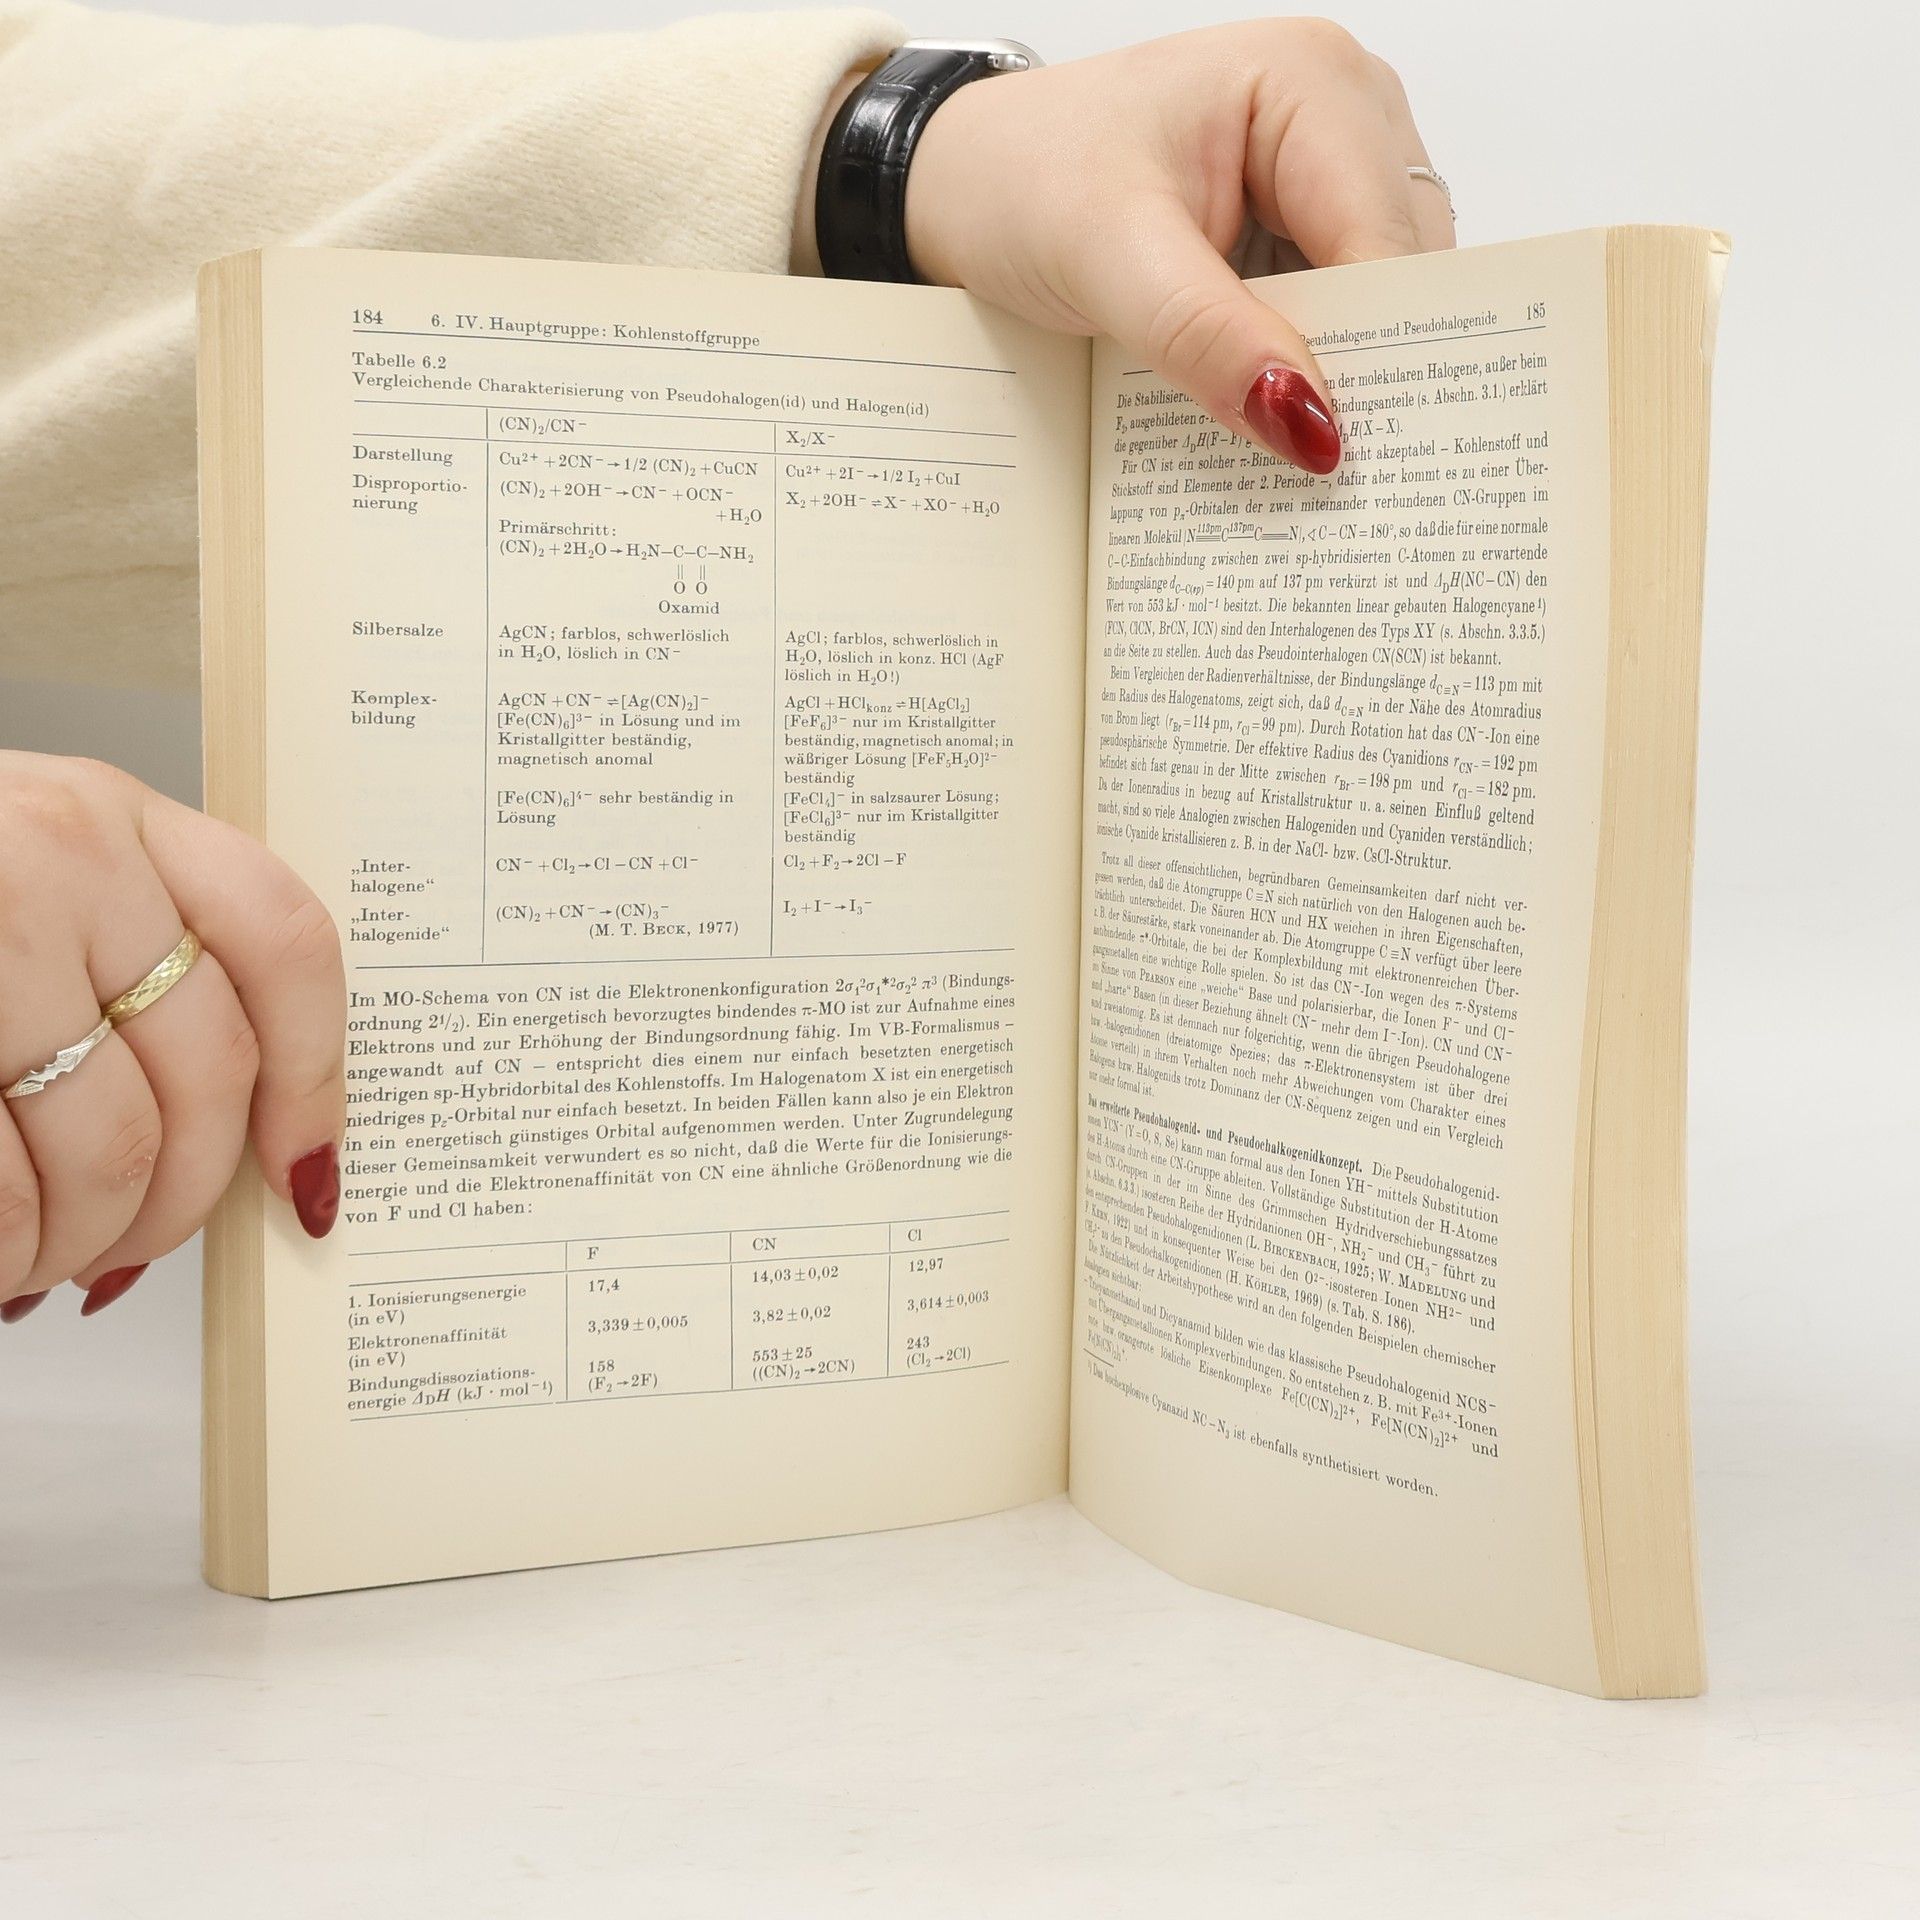 184 6. IV. Hauptgruppe: Kohlenstoffgruppe
Tabelle 6.2
Vergleichende Charakterisierung von Pseudohalogen(id) und Halogen(id)
(CN)₂/CN⁻ X₂/X⁻
Darstellung Cu²⁺ + 2CN⁻ → 1/2 (CN)₂ + CuCN Cu²⁺ + 2I⁻ → 1/2 I₂ + CuI
Disproportio- (CN)₂ + 2OH⁻ → CN⁻ + OCN⁻ X₂ + 2OH⁻ ⇌ X⁻ + XO⁻ + H₂O
nierung + H₂O
Primärschritt:
(CN)₂ + 2H₂O → H₂N–C–C–NH₂
|| ||
O O
Oxamid
Silbersalze AgCN; farblos, schwerlöslich AgCl; farblos, schwerlöslich in
in H₂O, löslich in CN⁻ H₂O, löslich in konz. HCl (AgF
löslich in H₂O!)
Komplex- AgCN + CN⁻ ⇌ [Ag(CN)₂]⁻ AgCl + HClkonz ⇌ H[AgCl₂]
bildung [Fe(CN)₆]³⁻ in Lösung und im [FeF₆]³⁻ nur im Kristallgitter
Kristallgitter beständig, beständig, magnetisch anomal; in
magnetisch anomal wäßriger Lösung [FeF₅H₂O]²⁻
beständig
[Fe(CN)₆]⁴⁻ sehr beständig in [FeCl₄]⁻ in salzsaurer Lösung;
Lösung [FeCl₆]³⁻ nur im Kristallgitter
beständig
„Inter- CN⁻ + Cl₂ → Cl – CN + Cl⁻ Cl₂ + F₂ → 2Cl – F
halogene“
„Inter- (CN)₂ + CN⁻ → (CN)₃⁻ I₂ + I⁻ → I₃⁻
halogenide“ (M. T. BECK, 1977)
Im MO-Schema von CN ist die Elektronenkonfiguration 2σ₁²σ₁*²σ₂² π³ (Bindungs-
ordnung 2¹/₂). Ein energetisch bevorzugtes bindendes π-MO ist zur Aufnahme eines
Elektrons und zur Erhöhung der Bindungsordnung fähig. Im VB-Formalismus –
angewandt auf CN – entspricht dies einem nur einfach besetzten energetisch
niedrigen sp-Hybridorbital des Kohlenstoffs. Im Halogenatom X ist ein energetisch
niedriges p𝓏-Orbital nur einfach besetzt. In beiden Fällen kann also je ein Elektron
in ein energetisch günstiges Orbital aufgenommen werden. Unter Zugrundelegung
dieser Gemeinsamkeit verwundert es so nicht, daß die Werte für die Ionisierungs-
energie und die Elektronenaffinität von CN eine ähnliche Größenordnung wie die
von F und Cl haben:
F CN Cl
1. Ionisierungsenergie 17,4 14,03 ± 0,02 12,97
(in eV)
Elektronenaffinität 3,339 ± 0,005 3,82 ± 0,02 3,614 ± 0,003
(in eV)
Bindungsdissoziations- 158 553 ± 25 243
energie ΔDH (kJ · mol⁻¹) (F₂ → 2F) ((CN)₂ → 2CN) (Cl₂ → 2Cl)
Pseudohalogene und Pseudohalogenide 185
Die en der molekularen Halogene, außer beim
F₂, ausgebildeten Bindungsanteile (s. Abschn. 3.1.) erklärt
die gegenüber ΔDH(F–F) ΔDH(X–X).
Für CN ist ein solcher nicht akzeptabel – Kohlenstoff und
Stickstoff sind Elemente der 2. Periode –, dafür aber kommt es zu einer Über-
lappung von pπ-Orbitalen der zwei miteinander verbundenen CN-Gruppen im
linearen Molekül |N≡113pm≡C–137pm–C≡N|, ∢ C – CN = 180°, so daß die für eine normale
C–C-Einfachbindung zwischen zwei sp-hybridisierten C-Atomen zu erwartende
Bindungslänge dC–C(sp) = 140 pm auf 137 pm verkürzt ist und ΔDH(NC – CN) den
Wert von 553 kJ · mol⁻¹ besitzt. Die bekannten linear gebauten Halogencyane¹)
(FCN, ClCN, BrCN, ICN) sind den Interhalogenen des Typs XY (s. Abschn. 3.3.5.)
an die Seite zu stellen. Auch das Pseudointerhalogen CN(SCN) ist bekannt.
Beim Vergleichen der Radienverhältnisse, der Bindungslänge dC≡N = 113 pm mit
dem Radius des Halogenatoms, zeigt sich, daß dC≡N in der Nähe des Atomradius
von Brom liegt (rBr = 114 pm, rCl = 99 pm). Durch Rotation hat das CN⁻-Ion eine
pseudosphärische Symmetrie. Der effektive Radius des Cyanidions rCN⁻ = 192 pm
befindet sich fast genau in der Mitte zwischen rBr⁻ = 198 pm und rCl⁻ = 182 pm.
Da der Ionenradius in bezug auf Kristallstruktur u. a. seinen Einfluß geltend
macht, sind so viele Analogien zwischen Halogeniden und Cyaniden verständlich;
ionische Cyanide kristallisieren z. B. in der NaCl- bzw. CsCl-Struktur.
Trotz all dieser offensichtlichen, begründbaren Gemeinsamkeiten darf nicht ver-
gessen werden, daß die Atomgruppe C≡N sich natürlich von den Halogenen auch be-
trächtlich unterscheidet. Die Säuren HCN und HX weichen in ihren Eigenschaften,
z. B. der Säurestärke, stark voneinander ab. Die Atomgruppe C≡N verfügt über leere
antibindende π*-Orbitale, die bei der Komplexbildung mit elektronenreichen Über-
gangsmetallen eine wichtige Rolle spielen. So ist das CN⁻-Ion wegen des π-Systems
im Sinne von PEARSON eine „weiche“ Base und polarisierbar, die Ionen F⁻ und Cl⁻
sind „harte“ Basen (in dieser Beziehung ähnelt CN⁻ mehr dem I⁻-Ion). CN und CN⁻
sind zweiatomig. Es ist demnach nur folgerichtig, wenn die übrigen Pseudohalogene
bzw. -halogenidionen (dreiatomige Spezies; das π-Elektronensystem ist über drei
Atome verteilt) in ihrem Verhalten noch mehr Abweichungen vom Charakter eines
Halogens bzw. Halogenids trotz Dominanz der CN-Sequenz zeigen und ein Vergleich
nur mehr formal ist.
Das erweiterte Pseudohalogenid- und Pseudochalkogenidkonzept. Die Pseudohalogenid-
ionen YCN⁻ (Y = O, S, Se) kann man formal aus den Ionen YH⁻ mittels Substitution
des H-Atoms durch eine CN-Gruppe ableiten. Vollständige Substitution der H-Atome
durch CN-Gruppen in der im Sinne des Grimmschen Hydridverschiebungssatzes
(s. Abschn. 6.3.3.) isosteren Reihe der Hydridanionen OH⁻, NH₂⁻ und CH₃⁻ führt zu
den entsprechenden Pseudohalogenidionen (L. BIRCKENBACH, 1925; W. MADELUNG und
F. KERN, 1922) und in konsequenter Weise bei den O²⁻-isosteren Ionen NH²⁻ und
CH₂²⁻ zu den Pseudochalkogenidionen (H. KÖHLER, 1969) (s. Tab. S. 186).
Die Nützlichkeit der Arbeitshypothese wird an den folgenden Beispielen chemischer
Analogien sichtbar:
– Tricyanmethanid und Dicyanamid bilden wie das klassische Pseudohalogenid NCS⁻
mit Übergangsmetallionen Komplexverbindungen. So entstehen z. B. mit Fe³⁺-Ionen
rote bzw. orangerote lösliche Eisenkomplexe Fe[C(CN)₃]²⁺, Fe[N(CN)₂]²⁺ und
¹) Das hochexplosive Cyanazid NC – N₃ ist ebenfalls synthetisiert worden.